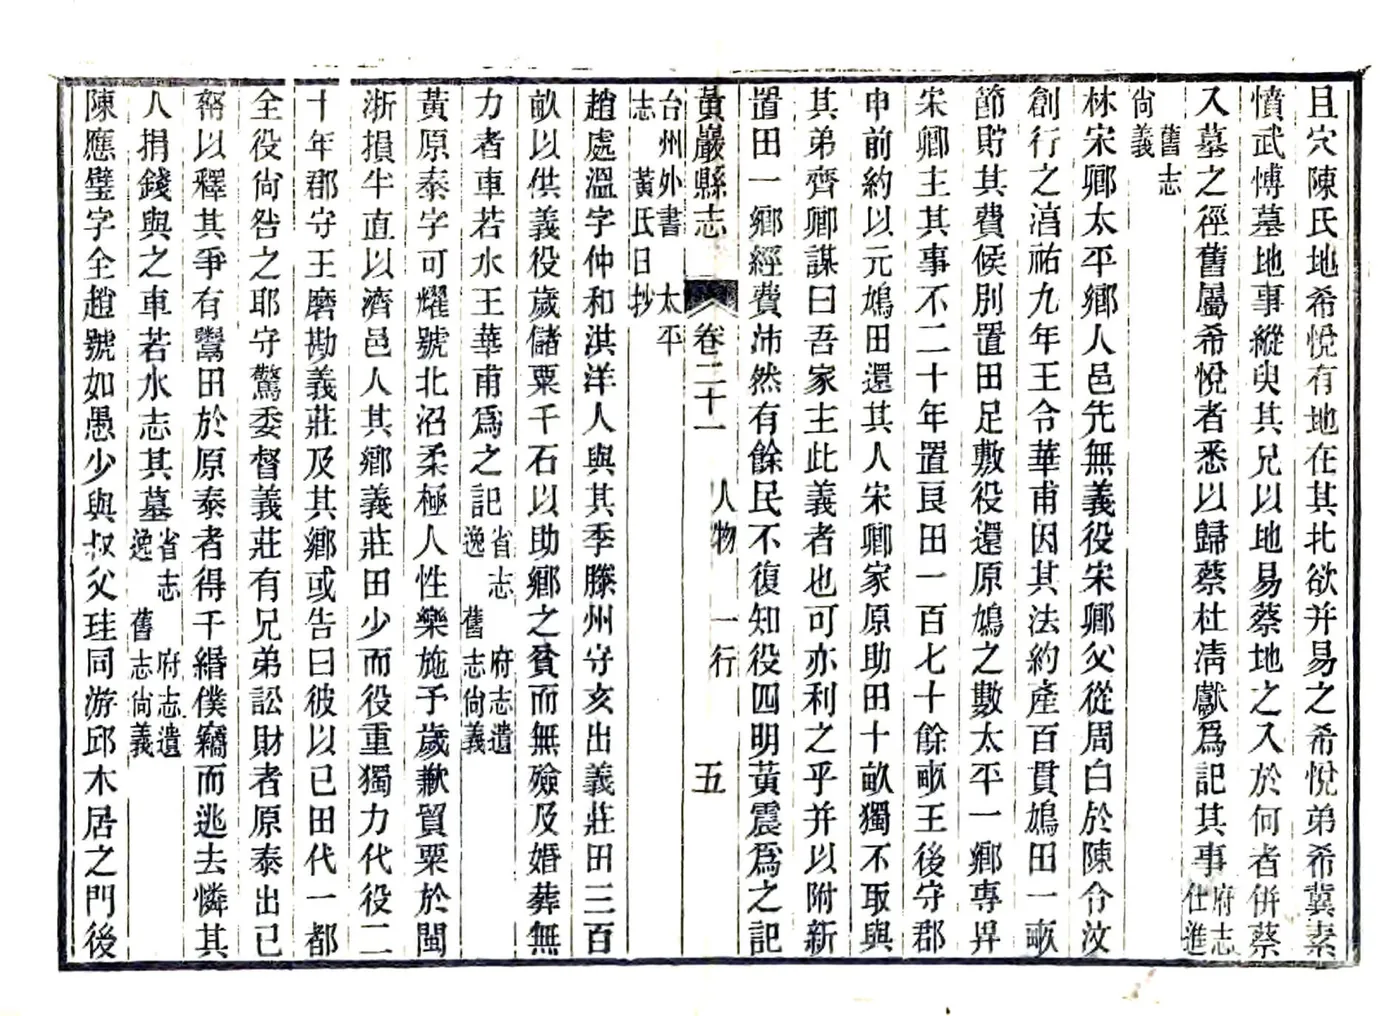 且穴陳氏地希悅有地在其北欲并易之希悅弟希冀素
憤武博墓地事縱臾其兄以地易蔡地之入於何者併蔡
入墓之徑舊屬希悅者悉以歸蔡杜淸獻爲記其事府志仕進
舊志尙義
林宋卿太平鄉人邑先無義役宋卿父從周白於陳令汶
創行之淳祐九年王令華甫因其法約產百貫鳩田一畝
節貯其費候別置田足敷役還原鳩之數太平一鄉專畀
宋卿主其事不二十年置良田一百七十餘畝王後守郡
申前約以元鳩田還其人宋卿家原助田十畝獨不取與
其弟齊卿謀曰吾家主此義者也可亦利之乎并以附新
置田一鄉經費沛然有餘民不復知役四明黃震爲之記
黃巖縣志 卷二十一 人物 一行 五
台州外書 太平志 黃氏日抄
趙處溫字仲和淇洋人與其季滕州守亥出義莊田三百
畝以供義役歲儲粟千石以助鄉之貧而無殮及婚葬無
力者車若水王華甫爲之記省志 府志遺逸 舊志尙義
黃原泰字可耀號北沼柔極人性樂施予歲歉貿粟於閩
浙損半直以濟邑人其鄉義莊田少而役重獨力代役二
十年郡守王磨勘義莊及其鄉或告曰彼以已田代一都
全役尙咎之耶守驚委督義莊有兄弟訟財者原泰出已
帑以釋其爭有鬻田於原泰者得千緡僕竊而逃去憐其
人捐錢與之車若水志其墓省志 府志遺逸 舊志尙義
陳應璧字全趙號如愚少與叔父珪同游邱木居之門後